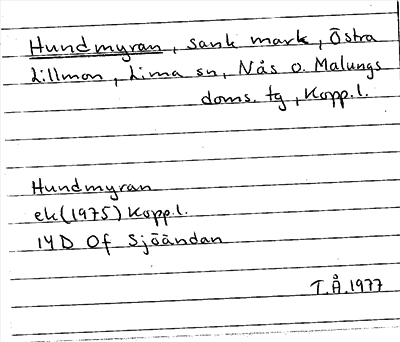 Hundmyran, sank mark, Östra
Lillmon, Lima sn, Nås o. Malungs
doms. tg, Kopp.l.
Hundmyran
ek(1975) Kopp.l.
14D 0f Sjöändan
T.Å.1977